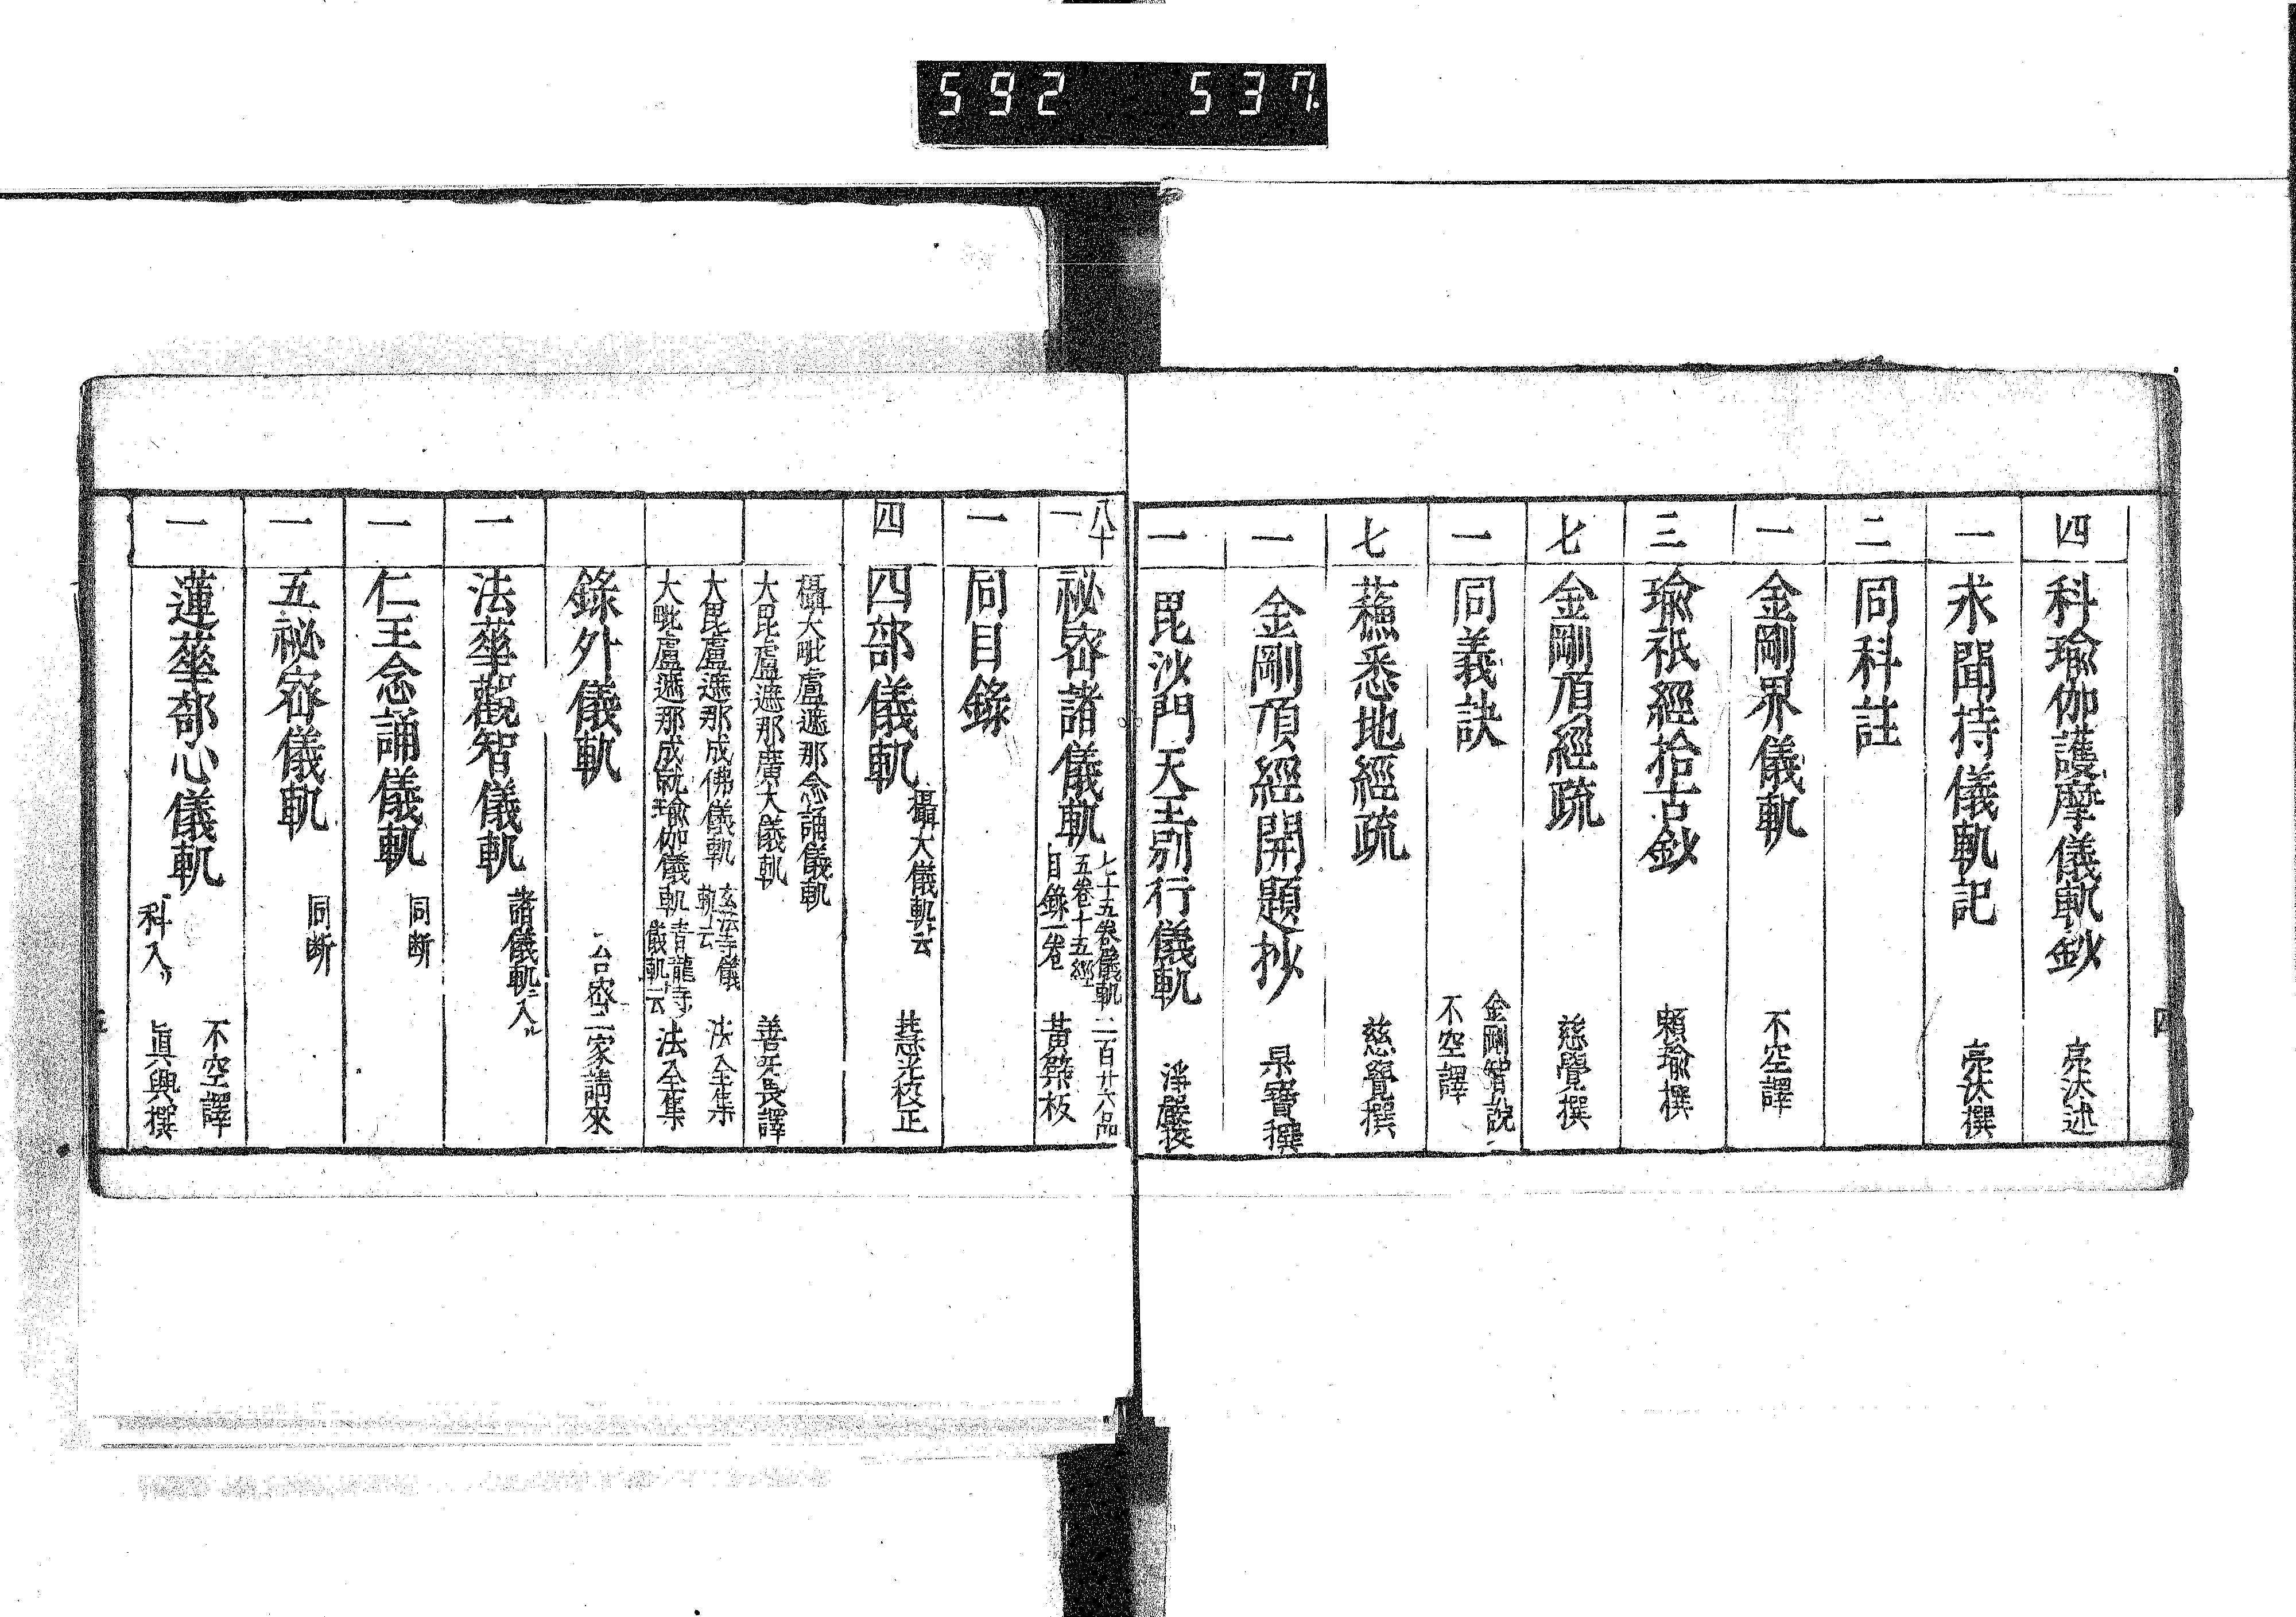 592 537.
四 科瑜伽護摩儀軌鈔 亮汰述
一 求聞持儀軌記 亮汰撰
二 同科註
一 金剛界儀軌 不空譯
三 瑜祇經拾古鈔 頼瑜撰
七 金剛頂經疏 慈覺撰
一 同義訣 金剛智說 不空譯
七 蘓悉地經疏 慈覺撰
一 金剛頂經開題抄 杲寶撰
一 毘沙門天王別行儀軌 淨嚴挍
四
八十一 祕密諸儀軌 七十五卷儀軌 五卷十五經 目錄一卷 二百廿六品 黃檗板
一 同目錄
四 四部儀軌 攝大儀軌云 慧光校正
攝大毗盧遮那念誦儀軌
大毘盧遮那廣大儀軌 善无畏譯
大毘盧遮那成佛儀軌 玄法寺儀軌云 法全集
大毗盧遮那成就瑜伽儀軌 青龍寺儀軌云 法全集
錄外儀軌 台密二家請來
一 法華觀智儀軌 諸儀軌ニ入ル
一 仁王念誦儀軌 同断
一 五祕密儀軌 同断
一 蓮華部心儀軌 科入リ 不空譯 眞興撰